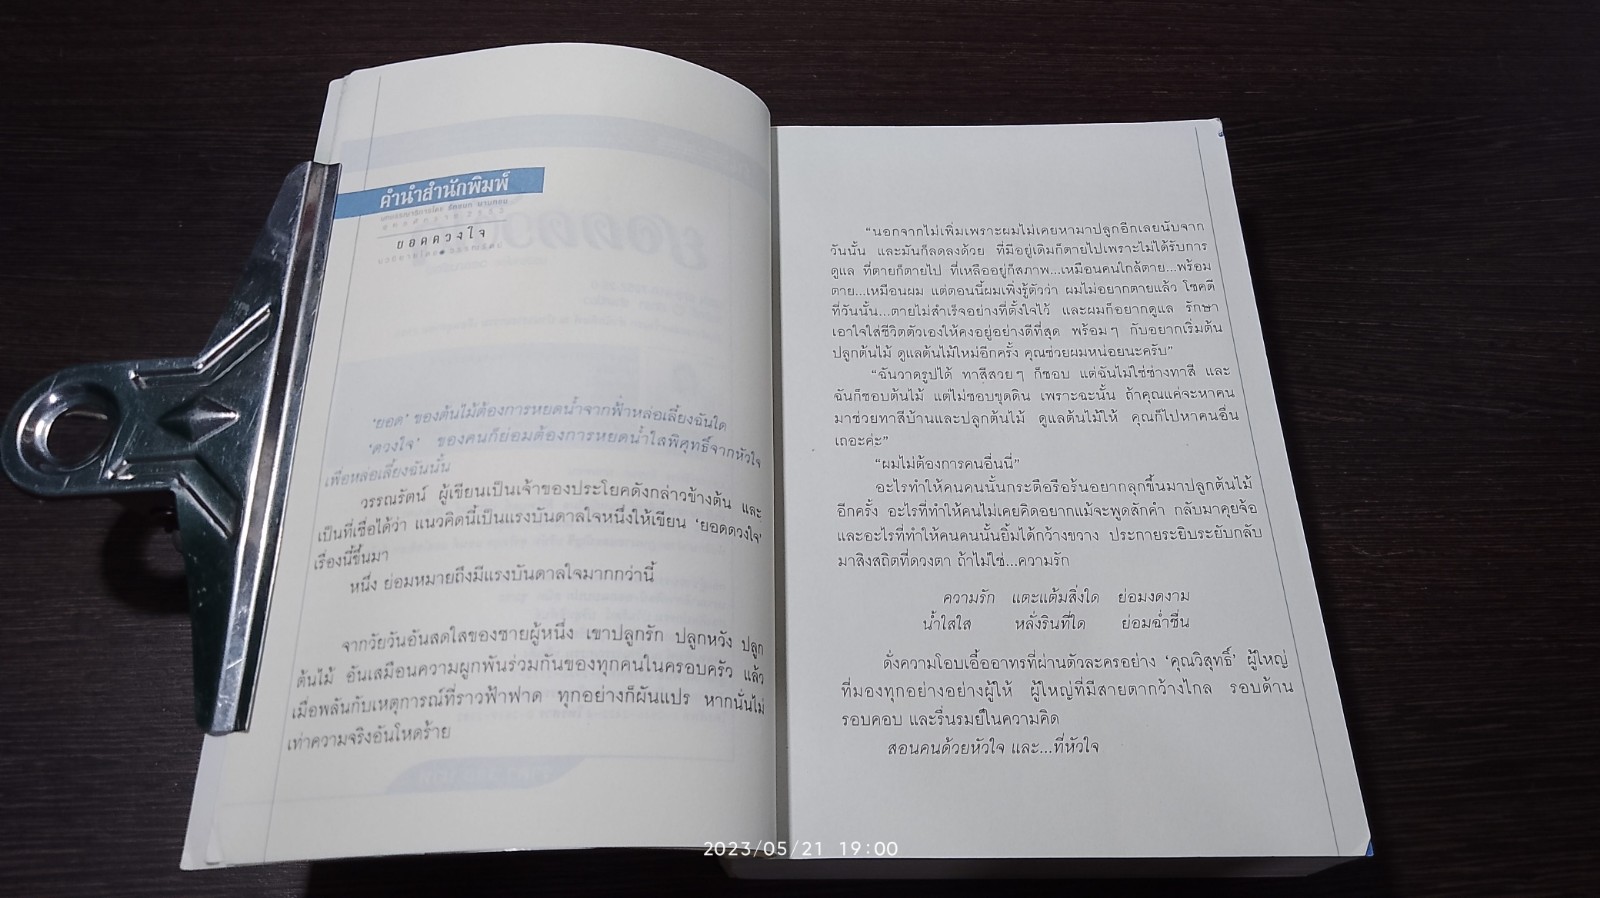 คำนำสำนักพิมพ์
ยอดดวงใจ
‘ยอด’ ของต้นไม้ต้องการหยดน้ำจากฟ้าหล่อเลี้ยงฉันใด
‘ดวงใจ’ ของคนก็ย่อมต้องการหยดน้ำใสพิศุทธิ์จากหัวใจ
เพื่อหล่อเลี้ยงฉันนั้น
วรรณรัตน์ ผู้เขียนเป็นเจ้าของประโยคดังกล่าวข้างต้น และ
เป็นที่เชื่อได้ว่า แนวคิดนี้เป็นแรงบันดาลใจหนึ่งให้เขียน ‘ยอดดวงใจ’
เรื่องนี้ขึ้นมา
หนึ่ง ย่อมหมายถึงมีแรงบันดาลใจมากกว่านี้
จากวัยวันอันสดใสของชายผู้หนึ่ง เขาปลูกรัก ปลูกหวัง ปลูก
ต้นไม้ อันเสมือนความผูกพันร่วมกันของทุกคนในครอบครัว แล้ว
เมื่อพลันกับเหตุการณ์ที่ราวฟ้าฟาด ทุกอย่างก็ผันแปร หากนั่นไม่
เท่าความจริงอันโหดร้าย
“นอกจากไม่เพิ่มเพราะผมไม่เคยหามาปลูกอีกเลยนับจาก
วันนั้น และมันก็ลดลงด้วย ที่มีอยู่เดิมก็ตายไปเพราะไม่ได้รับการ
ดูแล ที่ตายก็ตายไป ที่เหลืออยู่ก็สภาพ...เหมือนคนใกล้ตาย...พร้อม
ตาย...เหมือนผม แต่ตอนนี้ผมเพิ่งรู้ตัวว่า ผมไม่อยากตายแล้ว โชคดี
ที่วันนั้น...ตายไม่สำเร็จอย่างที่ตั้งใจไว้ และผมก็อยากดูแล รักษา
เอาใจใส่ชีวิตตัวเองให้คงอยู่อย่างดีที่สุด พร้อมๆ กับอยากเริ่มต้น
ปลูกต้นไม้ ดูแลต้นไม้ใหม่อีกครั้ง คุณช่วยผมหน่อยนะครับ”
“ฉันวาดรูปได้ ทาสีสวยๆ ก็ชอบ แต่ฉันไม่ใช่ช่างทาสี และ
ฉันก็ชอบต้นไม้ แต่ไม่ชอบขุดดิน เพราะฉะนั้น ถ้าคุณแค่จะหาคน
มาช่วยทาสีบ้านและปลูกต้นไม้ ดูแลต้นไม้ให้ คุณก็ไปหาคนอื่น
เถอะค่ะ”
“ผมไม่ต้องการคนอื่นนี่”
อะไรทำให้คนคนนั้นกระตือรือร้นอยากลุกขึ้นมาปลูกต้นไม้
อีกครั้ง อะไรที่ทำให้คนไม่เคยคิดอยากแม้จะพูดสักคำ กลับมาคุยจ้อ
และอะไรที่ทำให้คนคนนั้นยิ้มได้กว้างขวาง ประกายระยิบระยับกลับ
มาสิงสถิตที่ดวงตา ถ้าไม่ใช่...ความรัก
ความรัก แตะแต้มสิ่งใด ย่อมงดงาม
น้ำใสใส หลั่งรินที่ใด ย่อมฉ่ำชื่น
ดั่งความโอบเอื้ออาทรที่ผ่านตัวละครอย่าง ‘คุณวิสุทธิ์’ ผู้ใหญ่
ที่มองทุกอย่างอย่างผู้ให้ ผู้ใหญ่ที่มีสายตากว้างไกล รอบด้าน
รอบคอบ และรื่นรมย์ในความคิด
สอนคนด้วยหัวใจ และ...ที่หัวใจ
2023/05/21 19:00